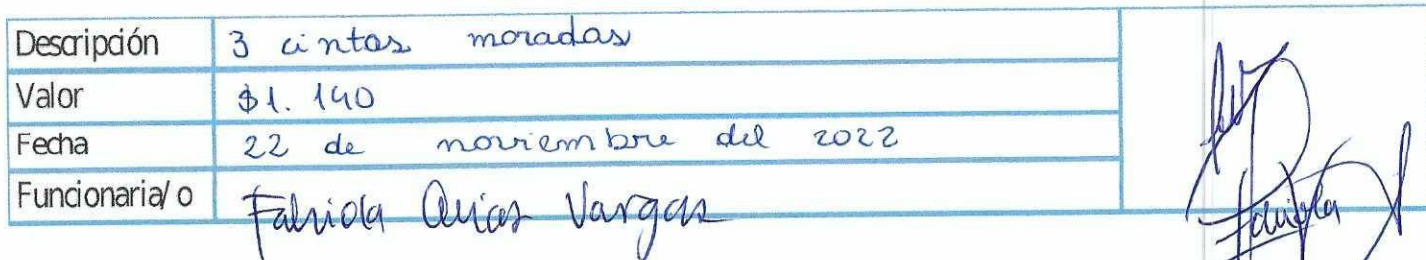 Descripción 3 cintas moradas
Valor $1.140
Fecha 22 de noviembre del 2022
Funcionaria/o Fabiola Arias Vargas
Fabiola